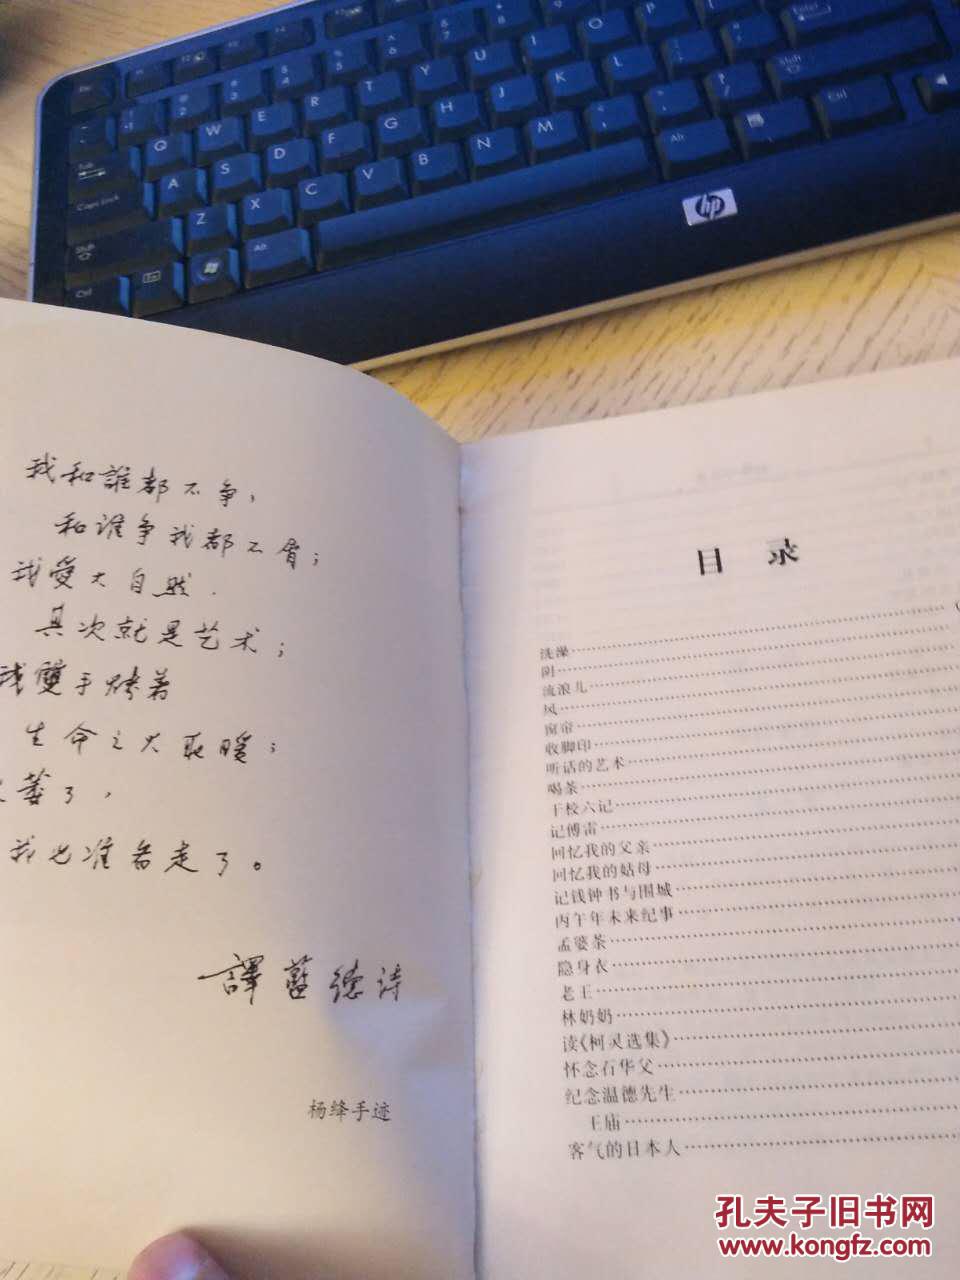 Esc F1 F2 F3 F4
Q W E R T Y U I O P
Tab
Caps Lock A S D F G H J K L
Shift Z X C V B N M
Ctrl Fn Alt Alt Ctrl
Shift
hp
我和誰都不争，
和谁争我都不屑；
我爱大自然．
其次就是艺术；
我雙手烤着
生命之火取暖；
火萎了，
我也准备走了。
——譯藍德诗
杨绛手迹
目 录
洗澡
阴
流浪儿
风
窗帘
收脚印
听话的艺术
喝茶
干校六记
记傅雷
回忆我的父亲
回忆我的姑母
记钱钟书与围城
丙午年未来纪事
孟婆茶
隐身衣
老王
林奶奶
读《柯灵选集》
怀念石华父
纪念温德先生
王庙
客气的日本人
孔夫子旧书网
www.kongfz.com